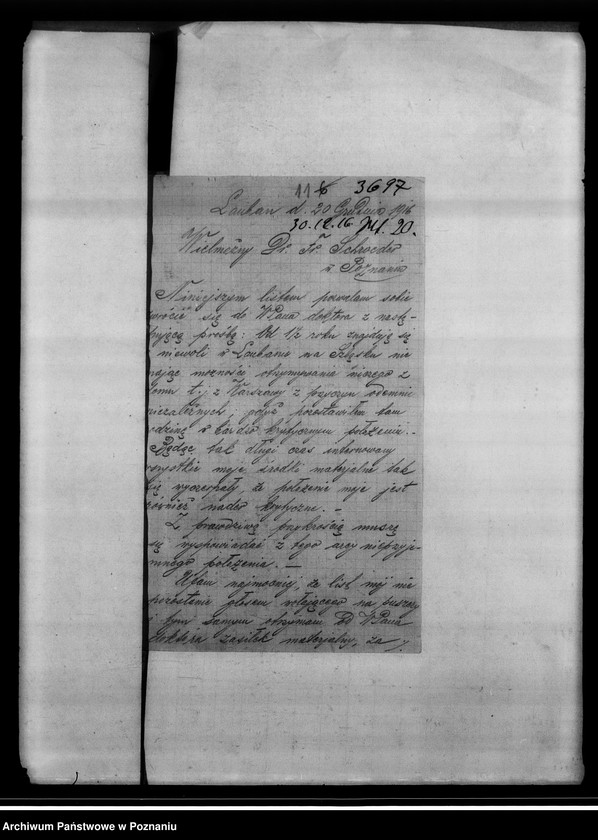 116 3697
Lauban d. 20 Grudnia 1916
30.12.16 M. 20.
Wielmożny Dr. Fr. Schroeder
w Poznaniu
Niniejszym listem pozwalam sobie
zwrócić się do WPana doktora z nastę-
pującą prośbą: Od 1½ roku znajduję się
w niewoli w Laubanie na Szląsku nie
mając możności otrzymywania niczego z
domu t.j. z Warszawy z przyczyn odemnie
niezależnych, gdyż pozostawiłem tam
rodzinę w bardzo krytycznym położeniu.
Będąc tak długi czas internowany
wszystkie moje środki materjalne tak
się wyczerpały, że położenie moje jest
również nader krytyczne. —
Z prawdziwą przykrością muszę
się wyspowiadać z tego arcy nieprzyje-
mnego położenia. —
Ufam najmocniej, że list mój nie
pozostanie głosem wołającego na puszczy
i tym samym otrzymam od WPana
doktora zasiłek materjalny, za
Archiwum Państwowe w Poznaniu